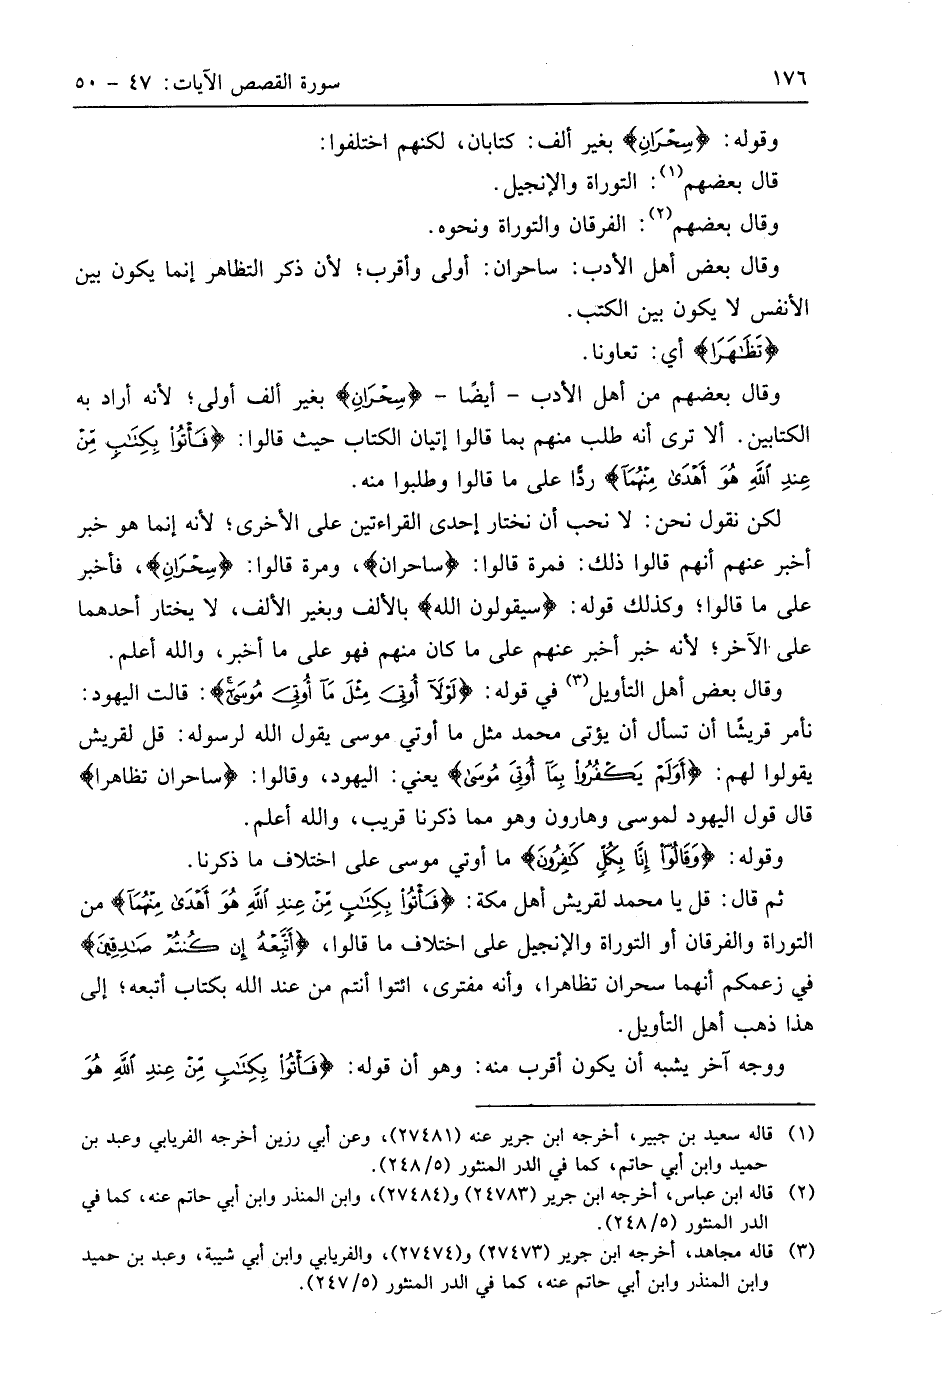 ١٧٦
سورة القصص الآيات: ٤٧ - ٥٠
وقوله: ﴿سِحْرَانِ﴾ بغير ألف: كتابان، لكنهم اختلفوا:
قال بعضهم(١): التوراة والإنجيل.
وقال بعضهم(٢): الفرقان والتوراة ونحوه.
وقال بعض أهل الأدب: ساحران: أولى وأقرب؛ لأن ذكر التظاهر إنما يكون بين
الأنفس لا يكون بين الكتب.
﴿تَظَٰهَرَا﴾ أي: تعاونا.
وقال بعضهم من أهل الأدب - أيضًا - ﴿سِحْرَانِ﴾ بغير ألف أولى؛ لأنه أراد به
الكتابين. ألا ترى أنه طلب منهم بما قالوا إتيان الكتاب حيث قالوا: ﴿فَأْتُوا۟ بِكِتَٰبٍ مِّنْ
عِندِ ٱللَّهِ هُوَ أَهْدَىٰ مِنْهُمَآ﴾ ردًّا على ما قالوا وطلبوا منه.
لكن نقول نحن: لا نحب أن نختار إحدى القراءتين على الأخرى؛ لأنه إنما هو خبر
أخبر عنهم أنهم قالوا ذلك: فمرة قالوا: ﴿ساحران﴾، ومرة قالوا: ﴿سِحْرَانِ﴾، فأخبر
على ما قالوا؛ وكذلك قوله: ﴿سيقولون الله﴾ بالألف وبغير الألف، لا يختار أحدهما
على الآخر؛ لأنه خبر أخبر عنهم على ما كان منهم فهو على ما أخبر، والله أعلم.
وقال بعض أهل التأويل(٣) في قوله: ﴿لَوْلَآ أُوتِىَ مِثْلَ مَآ أُوتِىَ مُوسَىٰٓ﴾: قالت اليهود:
نأمر قريشًا أن تسأل أن يؤتى محمد مثل ما أوتي موسى يقول الله لرسوله: قل لقريش
يقولوا لهم: ﴿أَوَلَمْ يَكْفُرُوا۟ بِمَآ أُوتِىَ مُوسَىٰ﴾ يعني: اليهود، وقالوا: ﴿ساحران تظاهرا﴾
قال قول اليهود لموسى وهارون وهو مما ذكرنا قريب، والله أعلم.
وقوله: ﴿وَقَالُوٓا۟ إِنَّا بِكُلٍّ كَٰفِرُونَ﴾ ما أوتي موسى على اختلاف ما ذكرنا.
ثم قال: قل يا محمد لقريش أهل مكة: ﴿فَأْتُوا۟ بِكِتَٰبٍ مِّنْ عِندِ ٱللَّهِ هُوَ أَهْدَىٰ مِنْهُمَآ﴾ من
التوراة والفرقان أو التوراة والإنجيل على اختلاف ما قالوا، ﴿أَتَّبِعْهُ إِن كُنتُمْ صَٰدِقِينَ﴾
في زعمكم أنهما سحران تظاهرا، وأنه مفترى، ائتوا أنتم من عند الله بكتاب أتبعه؛ إلى
هذا ذهب أهل التأويل.
ووجه آخر يشبه أن يكون أقرب منه: وهو أن قوله: ﴿فَأْتُوا۟ بِكِتَٰبٍ مِّنْ عِندِ ٱللَّهِ هُوَ
(١) قاله سعيد بن جبير، أخرجه ابن جرير عنه (٢٧٤٨١)، وعن أبي رزين أخرجه الفريابي وعبد بن
حميد وابن أبي حاتم، كما في الدر المنثور (٢٤٨/٥).
(٢) قاله ابن عباس، أخرجه ابن جرير (٢٤٧٨٣) و(٢٧٤٨٤)، وابن المنذر وابن أبي حاتم عنه، كما في
الدر المنثور (٢٤٨/٥).
(٣) قاله مجاهد، أخرجه ابن جرير (٢٧٤٧٣) و(٢٧٤٧٤)، والفريابي وابن أبي شيبة، وعبد بن حميد
وابن المنذر وابن أبي حاتم عنه، كما في الدر المنثور (٢٤٧/٥).